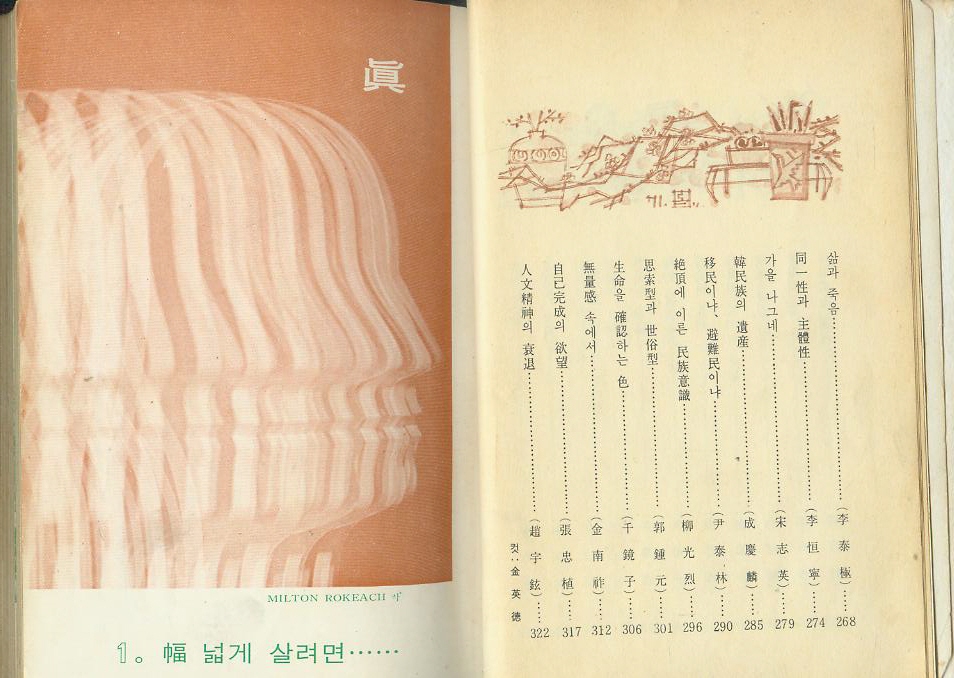 眞
MILTON ROKEACH 作
1。幅 넓게 살려면……
삶과 죽음……(李泰極)……268
同一性과 主體性……(李恒寧)……274
가을 나그네……(宋志英)……279
韓民族의 遺産……(成慶麟)……285
移民이냐、避難民이냐……(尹泰林)……290
絶頂에 이른 民族意識……(柳光烈)……296
思索型과 世俗型……(郭鍾元)……301
生命을 確認하는 色……(千鏡子)……306
無量感 속에서……(金南祚)……312
自己完成의 欲望……(張忠植)……317
人文精神의 衰退……(趙宇鉉)……322
컷：金英德